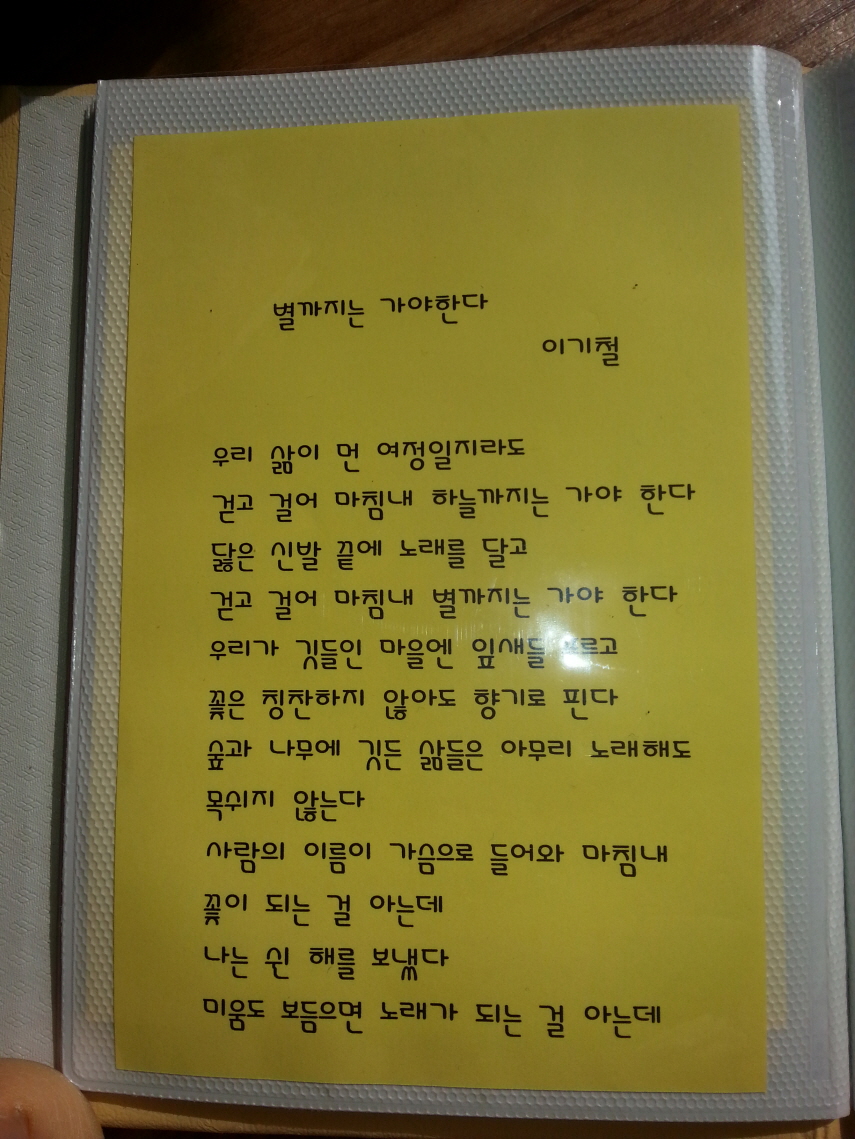 별까지는 가야한다
이기철
우리 삶이 먼 여정일지라도
걷고 걸어 마침내 하늘까지는 가야 한다
닳은 신발 끝에 노래를 달고
걷고 걸어 마침내 별까지는 가야 한다
우리가 깃들인 마을엔 잎새들 푸르고
꽃은 칭찬하지 않아도 향기로 핀다
숲과 나무에 깃든 삶들은 아무리 노래해도
목쉬지 않는다
사람의 이름이 가슴으로 들어와 마침내
꽃이 되는 걸 아는데
나는 쉰 해를 보냈다
미움도 보듬으면 노래가 되는 걸 아는데